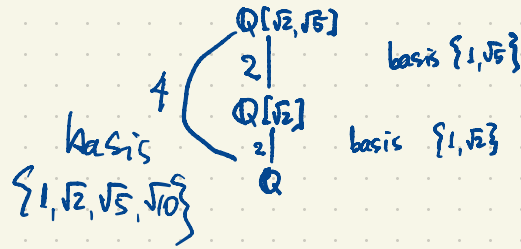 Q[√2,√5]
2
basis {1,√5}
4
Q[√2]
basis
2
basis {1,√2}
{1,√2,√5,√10}
Q